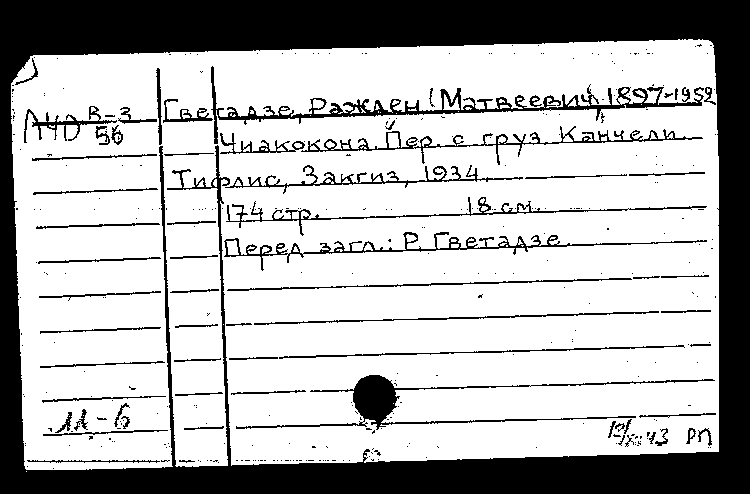 Гветадзе, Ражден (Матвеевич) 1897-1952
В-3
56
Чиакокона. Пер. с груз. Канчели.
Тифлис, Закгиз, 1934.
174 стр. 18 см.
Перед загл.: Р. Гветадзе.
11-6
43 РП